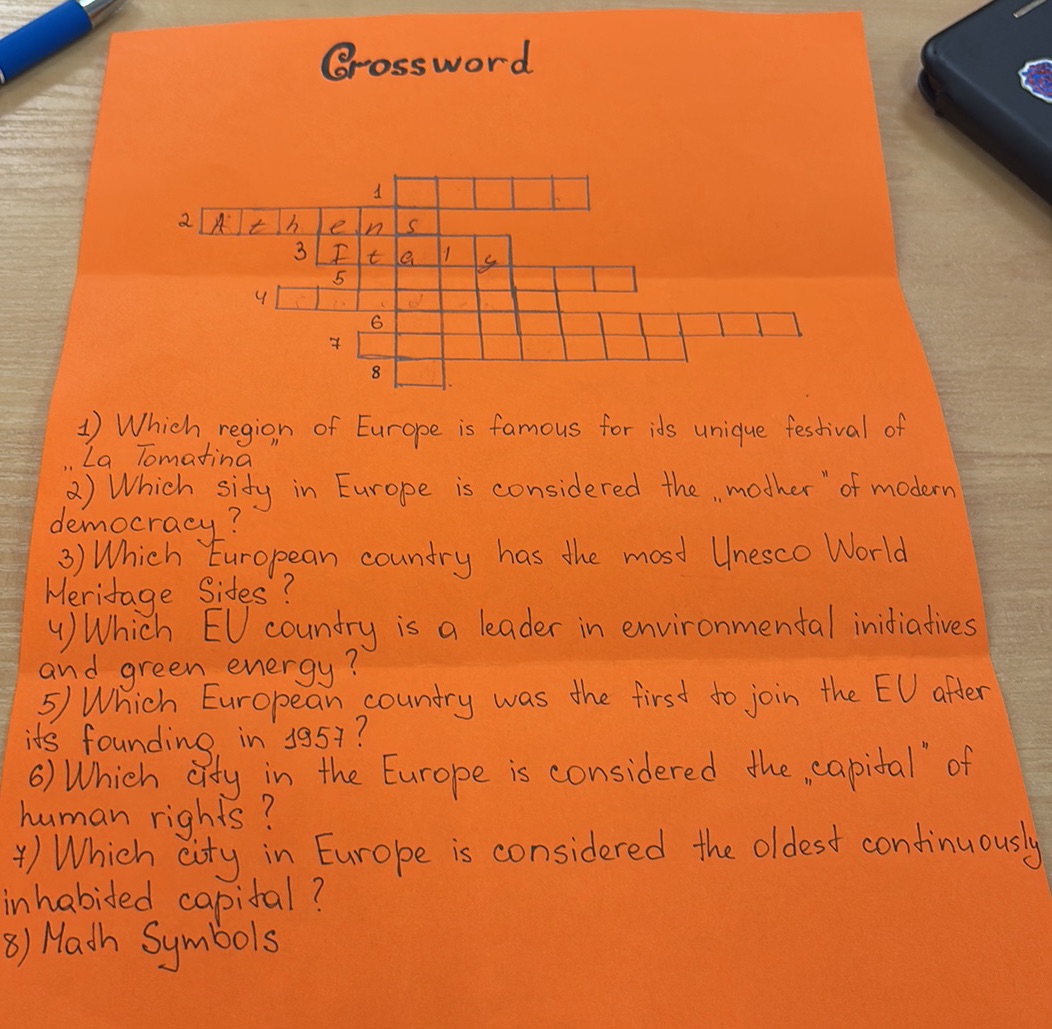 Crossword
1
2 Athens
3 Italy
5
4
6
7
8
1) Which region of Europe is famous for its unique festival of
„La Tomatina"
2) Which sity in Europe is considered the „mother" of modern
democracy?
3) Which European country has the most Unesco World
Heritage Sites?
4) Which EU country is a leader in environmental initiatives
and green energy?
5) Which European country was the first to join the EU after
its founding in 1957?
6) Which city in the Europe is considered the „capital" of
human rights?
7) Which city in Europe is considered the oldest continuously
inhabited capital?
8) Math Symbols